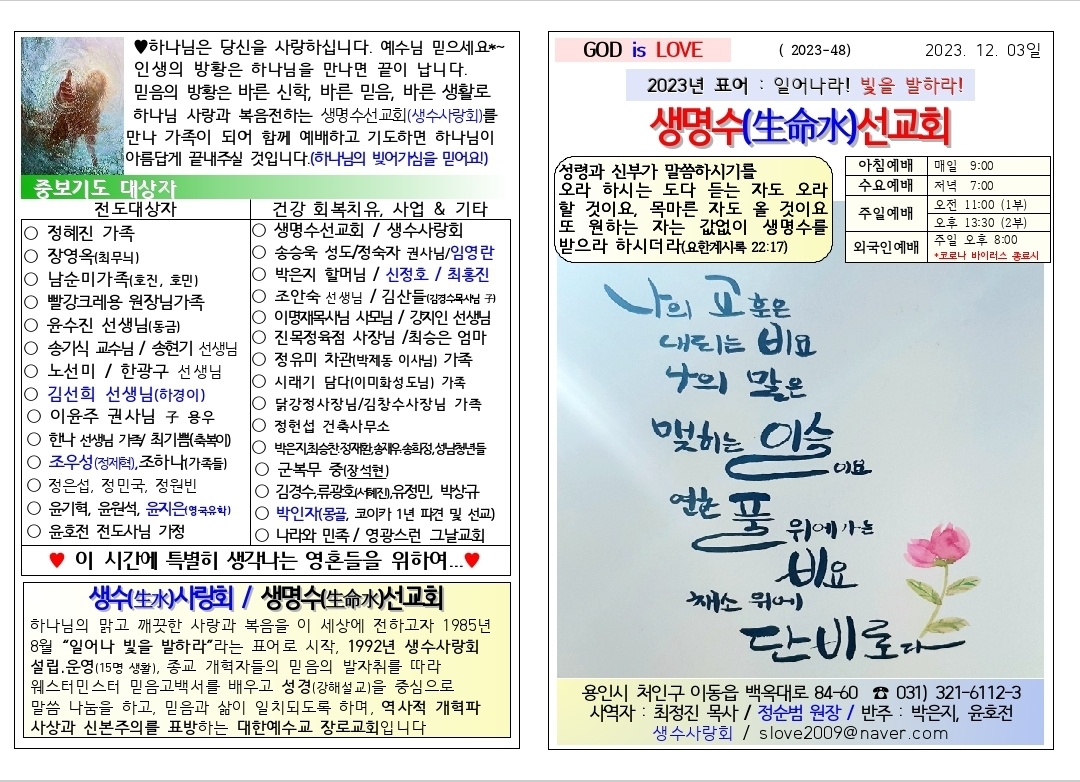 ♥하나님은 당신을 사랑하십니다. 예수님 믿으세요*~
인생의 방황은 하나님을 만나면 끝이 납니다.
믿음의 방황은 바른 신학, 바른 믿음, 바른 생활로
하나님 사랑과 복음전하는 생명수선교회(생수사랑회)를
만나 가족이 되어 함께 예배하고 기도하면 하나님이
아름답게 끝내주실 것입니다.(하나님의 빚어가심을 믿어요!)
중보기도 대상자
전도대상자
○ 정혜진 가족
○ 장영옥(최무늬)
○ 남순미가족(호진, 호민)
○ 빨강크레용 원장님가족
○ 윤수진 선생님(동금)
○ 송기식 교수님 / 송현기 선생님
○ 노선미 / 한광구 선생님
○ 김선희 선생님(하경이)
○ 이윤주 권사님 子 용우
○ 한나 선생님 가족/ 최기쁨(축복이)
○ 조우성(정제혁),조하나(가족들)
○ 정은섭, 정민국, 정원빈
○ 윤기혁, 윤원석, 윤지은(영국유학)
○ 윤호전 전도사님 가정
건강 회복치유, 사업 & 기타
○ 생명수선교회 / 생수사랑회
○ 송승욱 성도/정숙자 권사님/임영란
○ 박은지 할머님 / 신정호 / 최홍진
○ 조안숙 선생님 / 김산들(김경수목사님 子)
○ 이명재목사님 사모님 / 강지인 선생님
○ 진목정육점 사장님 /최승은 엄마
○ 정유미 차관(박제동 이사님) 가족
○ 시래기 담다(이미화성도님) 가족
○ 닭강정사장님/김창수사장님 가족
○ 정헌섭 건축사무소
○ 박은지,최승찬·정재환,송재우·송화정,성남청년들
○ 군복무 중(장석현)
○ 김경수,류광호(서혜진),유정민, 박상규
○ 박인자(몽골, 코이카 1년 파견 및 선교)
○ 나라와 민족 / 영광스런 그날교회
♥ 이 시간에 특별히 생각나는 영혼들을 위하여...♥
생수(生水)사랑회 / 생명수(生命水)선교회
하나님의 맑고 깨끗한 사랑과 복음을 이 세상에 전하고자 1985년
8월 “일어나 빛을 발하라”라는 표어로 시작, 1992년 생수사랑회
설립.운영(15명 생활), 종교 개혁자들의 믿음의 발자취를 따라
웨스터민스터 믿음고백서를 배우고 성경(강해설교)을 중심으로
말씀 나눔을 하고, 믿음과 삶이 일치되도록 하며, 역사적 개혁파
사상과 신본주의를 표방하는 대한예수교 장로교회입니다
GOD is LOVE ( 2023-48) 2023. 12. 03일
2023년 표어 : 일어나라! 빛을 발하라!
생명수(生命水)선교회
성령과 신부가 말씀하시기를
오라 하시는 도다 듣는 자도 오라
할 것이요, 목마른 자도 올 것이요
또 원하는 자는 값없이 생명수를
받으라 하시더라(요한계시록 22:17)
아침예배 매일 9:00
수요예배 저녁 7:00
주일예배 오전 11:00 (1부)
오후 13:30 (2부)
외국인예배 주일 오후 8:00
*코로나 바이러스 종료시
나의 교훈은
내리는 비요
나의 말은
맺히는 이슬
이요
연한 풀 위에 가는
비요
채소 위에
단비로다
용인시 처인구 이동읍 백옥대로 84-60 ☎ 031) 321-6112-3
사역자 : 최정진 목사 / 정순범 원장 / 반주 : 박은지, 윤호전
생수사랑회 / slove2009@naver.com